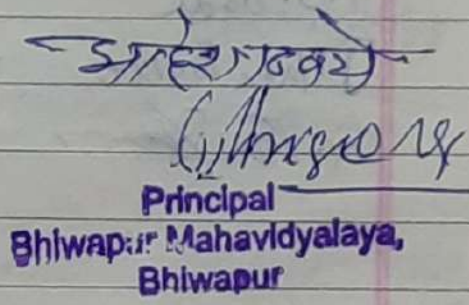 आदेशान्वये
Principal
Bhiwapur Mahavidyalaya,
Bhiwapur